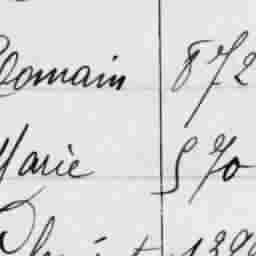 Romain 872
Marie 570